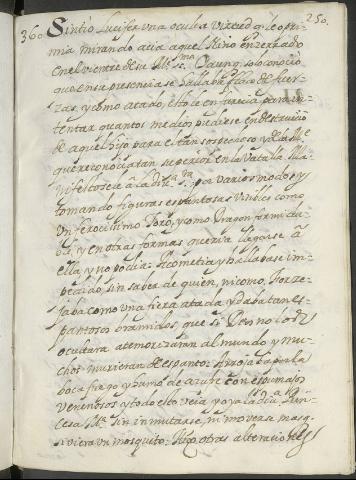 250.
360 Sintio Lucifer una oculta virtud q.e le opri-
mia mirando acia aquel Nino enzerrado
en el vientre de su M.e S.ma Y aunq. solo conocio
que en su presencia se hallaba flaco de fuer-
zas, y como atado, esto le enfurecia para in-
tentar quantos medios pudiese en destruicio
de aquel hijo para el tan sospechoso y de la M.e
que reconocia tan superior en la vatalla. Ma-
nifestosele a la Div.a S.ra por varios modos y
tomando figuras espantosas visibles como
un ferocisimo Toro, y como Dragon formida-
ble, y en otras formas queria llegarse a
ella y no podia: Acometia y hallabase im-
pedido, sin saber de quien, ni como. Forze-
jaba como una fiera atada y daba tan es-
pantosos bramidos, que si Dios no los
ocultara atemorizaran al mundo y mu-
chos murieran de espanto: Arrojaba por la
boca fuego y humo de azufre con espumajos
venenosos y todo esto veia y oya la Div.a Prin-
cesa M.a sin inmutarse, ni moverse mas q.
si viera un mosquito. Hizo otras alteracio